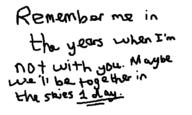 Remember me in
the years when I'm
not with you. Maybe
we'll be together in
the skies 1 day.